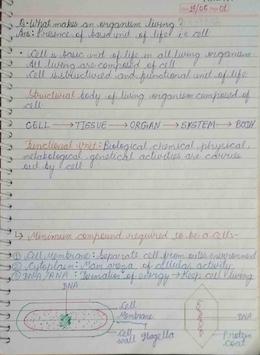 Q:- What makes an organism living ?
Ans: Presence of basic unit of life i.e cell
• Cell is basic unit of life in all living organism
All living are composed of cell
Cell is structural and functional unit of life
Structural body of living organism composed of
cell
CELL → TISSUE → ORGAN → SYSTEM → BODY
Functional Unit: Biological, chemical, physical,
genetical activities are carried
out by cell
↳ Minimum compound required to be a cell-
① Cell Membrane: Separate cell from outer environment
② Cytoplasm: Main arena of cellular activity
③ DNA/RNA: of energy → Keep cell living
DNA
DNA
Cell
Membrane
Cell
wall
flagella
Protein
coat